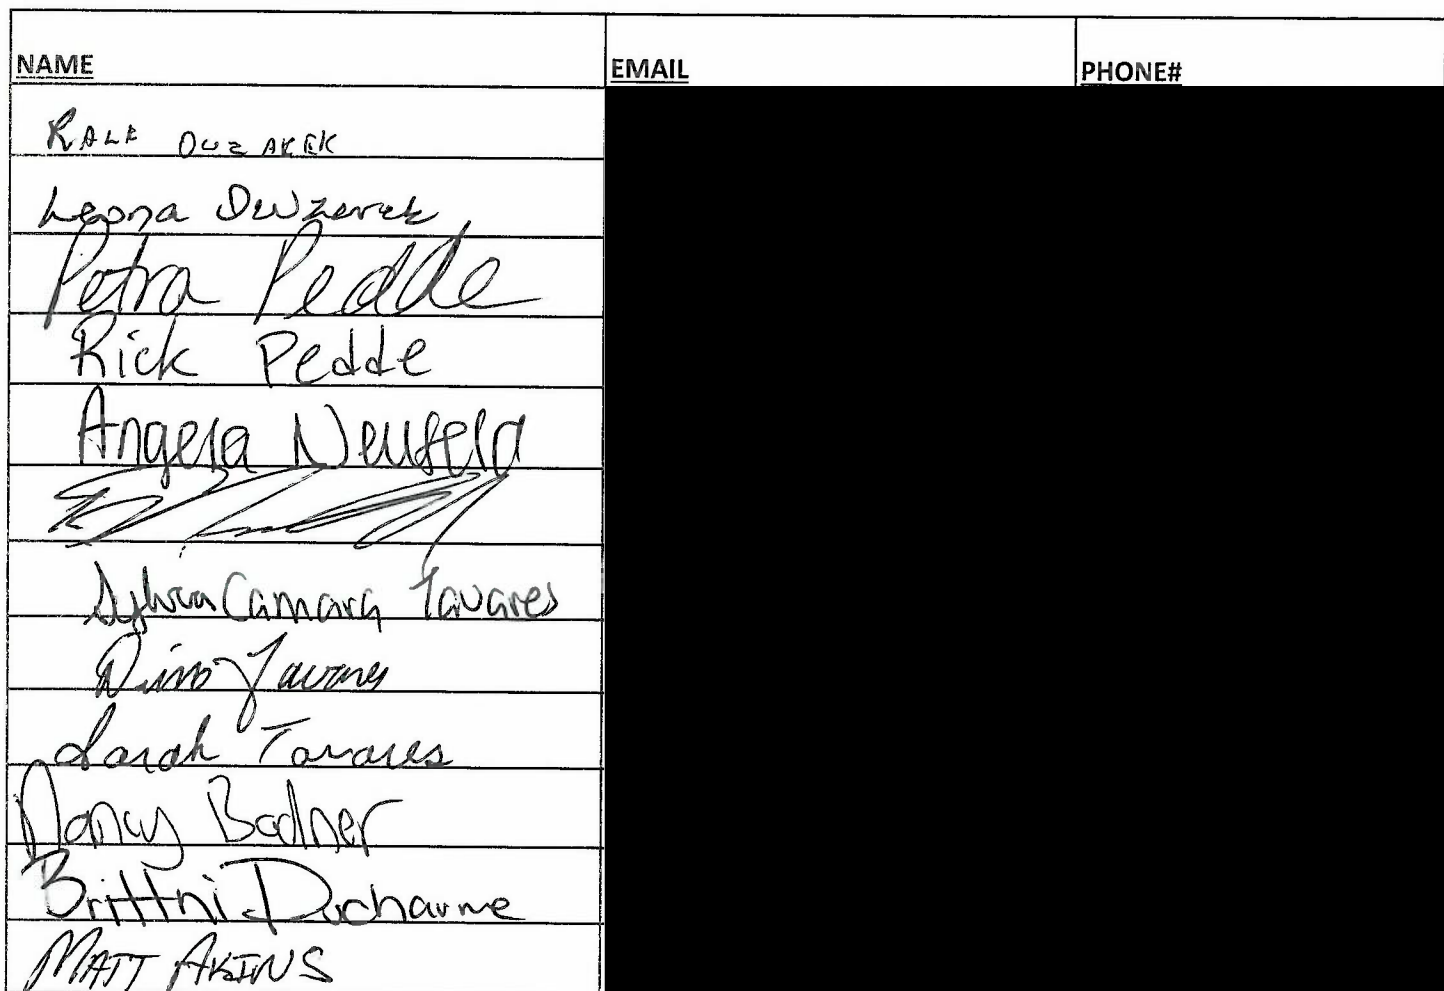 NAME EMAIL PHONE#
RALF
Leona
Petra Pedde
Rick Pedde
Angela Neufeld
Sylvia Camara Tavares
Tavares
Sarah Tavares
Nancy Bodner
Brittni Ducharme
MATT AKINS